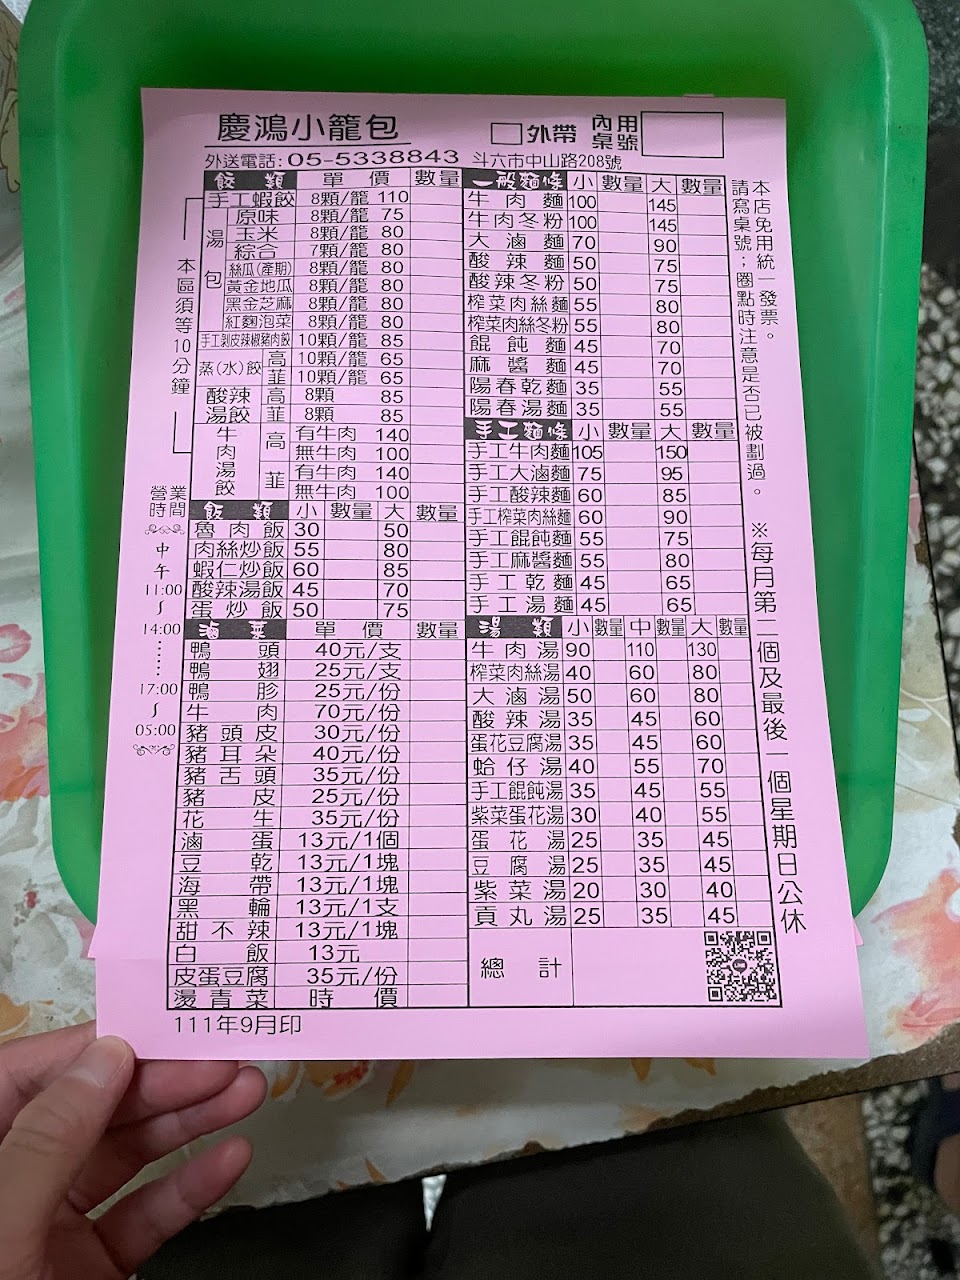 慶鴻小籠包
□外帶 內用桌號
外送電話:05-5338843 斗六市中山路208號
餃類 單價 數量
手工蝦餃 8顆/籠 110
湯包
原味 8顆/籠 75
玉米 8顆/籠 80
綜合 7顆/籠 80
絲瓜(產期) 8顆/籠 80
黃金地瓜 8顆/籠 80
黑金芝麻 8顆/籠 80
紅麴泡菜 8顆/籠 80
手工剝皮辣椒豬肉餃 10顆/籠 85
蒸(水)餃 高 10顆/籠 65
韮 10顆/籠 65
酸辣湯餃 高 8顆 85
韮 8顆 85
牛肉湯餃 高 有牛肉 140
無牛肉 100
韮 有牛肉 140
無牛肉 100
本區須等10分鐘
飯類 小 數量 大 數量
魯肉飯 30 50
肉絲炒飯 55 80
蝦仁炒飯 60 85
酸辣湯飯 45 70
蛋炒飯 50 75
滷菜 單價 數量
鴨頭 40元/支
鴨翅 25元/支
鴨胗 25元/份
牛肉 70元/份
豬頭皮 30元/份
豬耳朵 40元/份
豬舌頭 35元/份
豬皮 25元/份
花生 35元/份
滷蛋 13元/1個
豆乾 13元/1塊
海帶 13元/1塊
黑輪 13元/1支
甜不辣 13元/1塊
白飯 13元
皮蛋豆腐 35元/份
燙青菜 時價
營業時間
中午
11:00
～
14:00
⋮
17:00
～
05:00
一般麵條 小 數量 大 數量
牛肉麵 100 145
牛肉冬粉 100 145
大滷麵 70 90
酸辣麵 50 75
酸辣冬粉 50 75
榨菜肉絲麵 55 80
榨菜肉絲冬粉 55 80
餛飩麵 45 70
麻醬麵 45 70
陽春乾麵 35 55
陽春湯麵 35 55
手工麵條 小 數量 大 數量
手工牛肉麵 105 150
手工大滷麵 75 95
手工酸辣麵 60 85
手工榨菜肉絲麵 60 90
手工餛飩麵 55 75
手工麻醬麵 55 80
手工乾麵 45 65
手工湯麵 45 65
湯類 小 數量 中 數量 大 數量
牛肉湯 90 110 130
榨菜肉絲湯 40 60 80
大滷湯 50 60 80
酸辣湯 35 45 60
蛋花豆腐湯 35 45 60
蛤仔湯 40 55 70
手工餛飩湯 35 45 55
紫菜蛋花湯 30 40 55
蛋花湯 25 35 45
豆腐湯 25 35 45
紫菜湯 20 30 40
貢丸湯 25 35 45
總計
本店免用統一發票。
請寫桌號；圈點時注意是否已被劃過。
※每月第二個及最後一個星期日公休
111年9月印